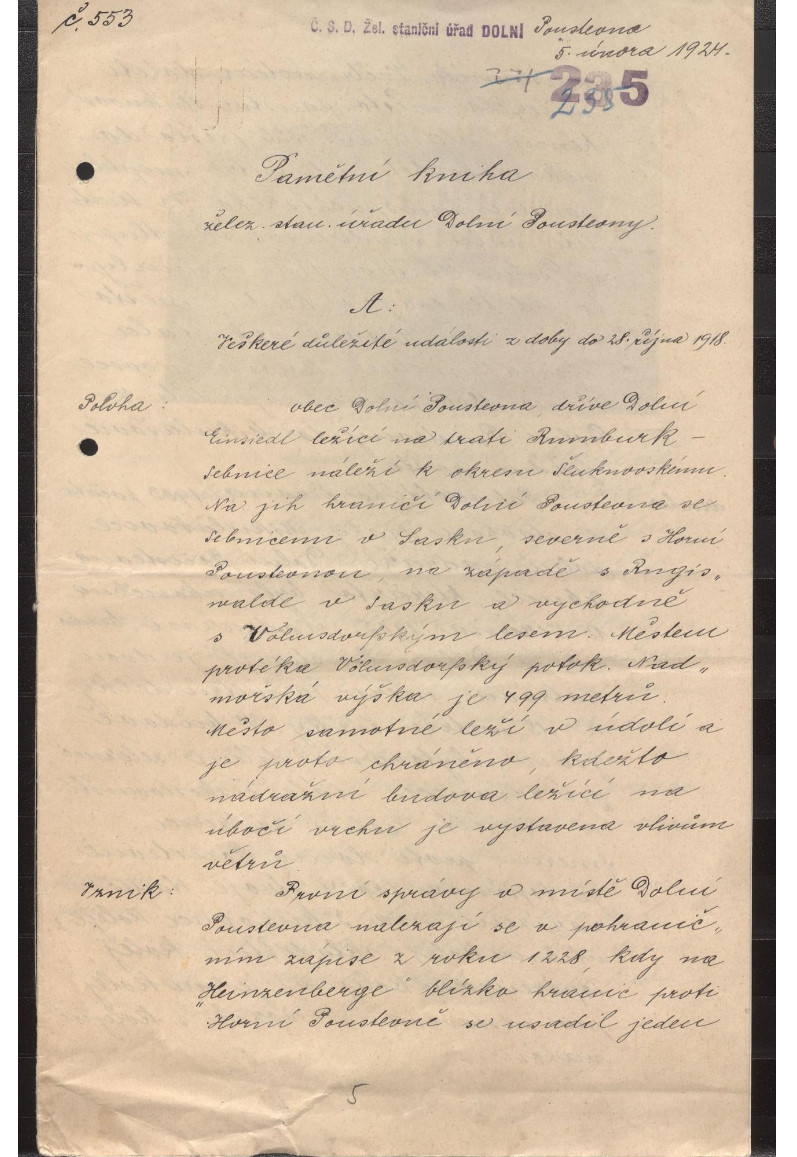 č. 553
Č. S. D. Žel. staniční úřad DOLNÍ Poustevna
5. února 1924.
235
235
Pamětní kniha
želez. stan. úřadu Dolní Poustevny.
A:
Veškeré důležité události z doby do 28. října 1918.
Poloha:
obec Dolní Poustevna, dříve Dolní
Einsiedl ležící na trati Rumburk –
Sebnice náleží k okresu Šluknovskému.
Na jih hraničí Dolní Poustevna se
Sebnicemi v Sasku, severně s Horní
Poustevnou, na západě s Rugis„
walde v Sasku a východně
s Völmsdorfským lesem. Městem
protéka Völmsdorfský potok. Nad„
mořská výška je 499 metrů.
Město samotné leží v údolí a
je proto chráněno, kdežto
nádražní budova ležící na
úbočí vrchu je vystavena vlivům
větrů.
Vznik:
První správy o místě Dolní
Poustevna nalezají se v pohranič„
ním zápise z roku 1228, kdy na
„Heinzenberge" blízko hranic proti
Horní Poustevně se usadil jeden
5